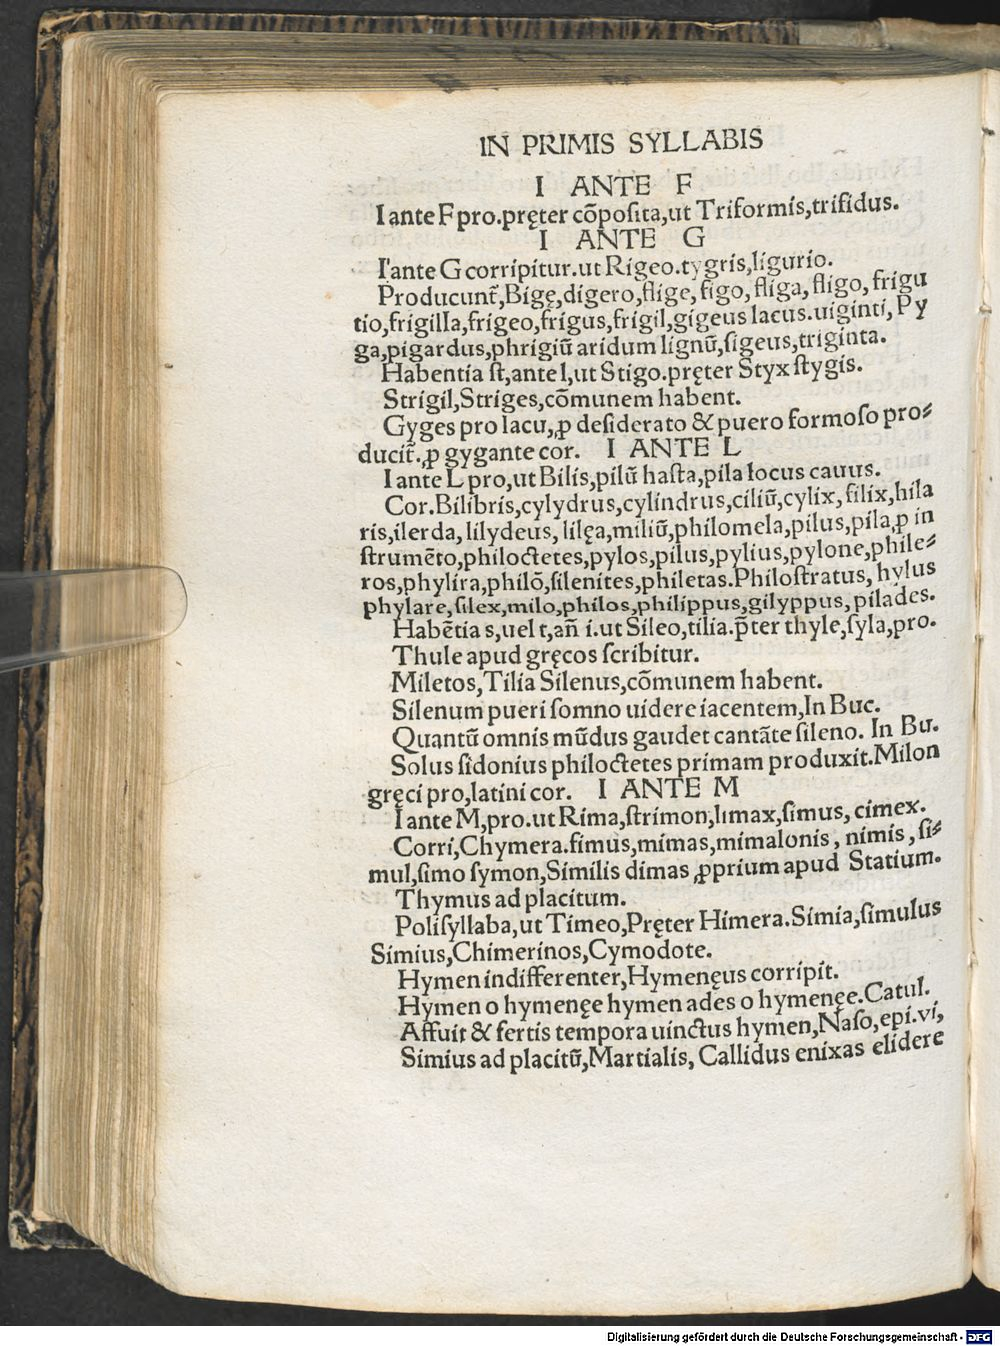 IN PRIMIS SYLLABIS
I ANTE F
I ante F pro. pręter cõposita, ut Triformis, trifidus.
I ANTE G
I ante G corripitur. ut Rigeo. tygris, ligurio.
Producunt̃, Bigę, digero, flige, figo, fliga, fligo, frigu
tio, frigilla, frigeo, frigus, frigil, gigeus lacus. uiginti, Py
ga, pigardus, phrigiũ aridum lignũ, sigeus, triginta.
Habentia st, ante l, ut Stigo. pręter Styx stygis.
Strigil, Striges, cõmunem habent.
Gyges pro lacu, ꝓ desiderato & puero formoso pro⸗
ducit̃. ꝓ gygante cor. I ANTE L
I ante L pro, ut Bilis, pilũ hasta, pila locus cauus.
Cor. Bilibris, cylydrus, cylindrus, ciliũ, cylix, filix, hila
ris, ilerda, lilydeus, lilęa, miliũ, philomela, pilus, pila, ꝓ in
strumẽto, philoctetes, pylos, pilus, pylius, pylone, phile⸗
ros, phylira, philõ, silenites, philetas. Philostratus, hylus
phylare, silex, milo, philos, philippus, gilyppus, pilades.
Habẽtia s, uel t, añ i. ut Sileo, tilia. p̃ter thyle, syla, pro.
Thule apud gręcos scribitur.
Miletos, Tilia Silenus, cõmunem habent.
Silenum pueri somno uidere iacentem, In Buc.
Quantũ omnis mũdus gaudet cantãte sileno. In Bu.
Solus sidonius philoctetes primam produxit. Milon
gręci pro, latini cor. I ANTE M
I ante M, pro. ut Rima, strimon, limax, simus, cimex.
Corri, Chymera. fimus, mimas, mimalonis, nimis, si⸗
mul, simo symon, Similis dimas ꝓprium apud Statium.
Thymus ad placitum.
Polisyllaba, ut Timeo, Pręter Himera. Simia, simulus
Simius, Chimerinos, Cymodote.
Hymen indifferenter, Hymenęus corripit.
Hymen o hymenęe hymen ades o hymenęe. Catul.
Affuit & fertis tempora uinctus hymen, Naso, epi. vi,
Simius ad placitũ, Martialis, Callidus enixas elidere
Digitalisierung gefördert durch die Deutsche Forschungsgemeinschaft - DFG